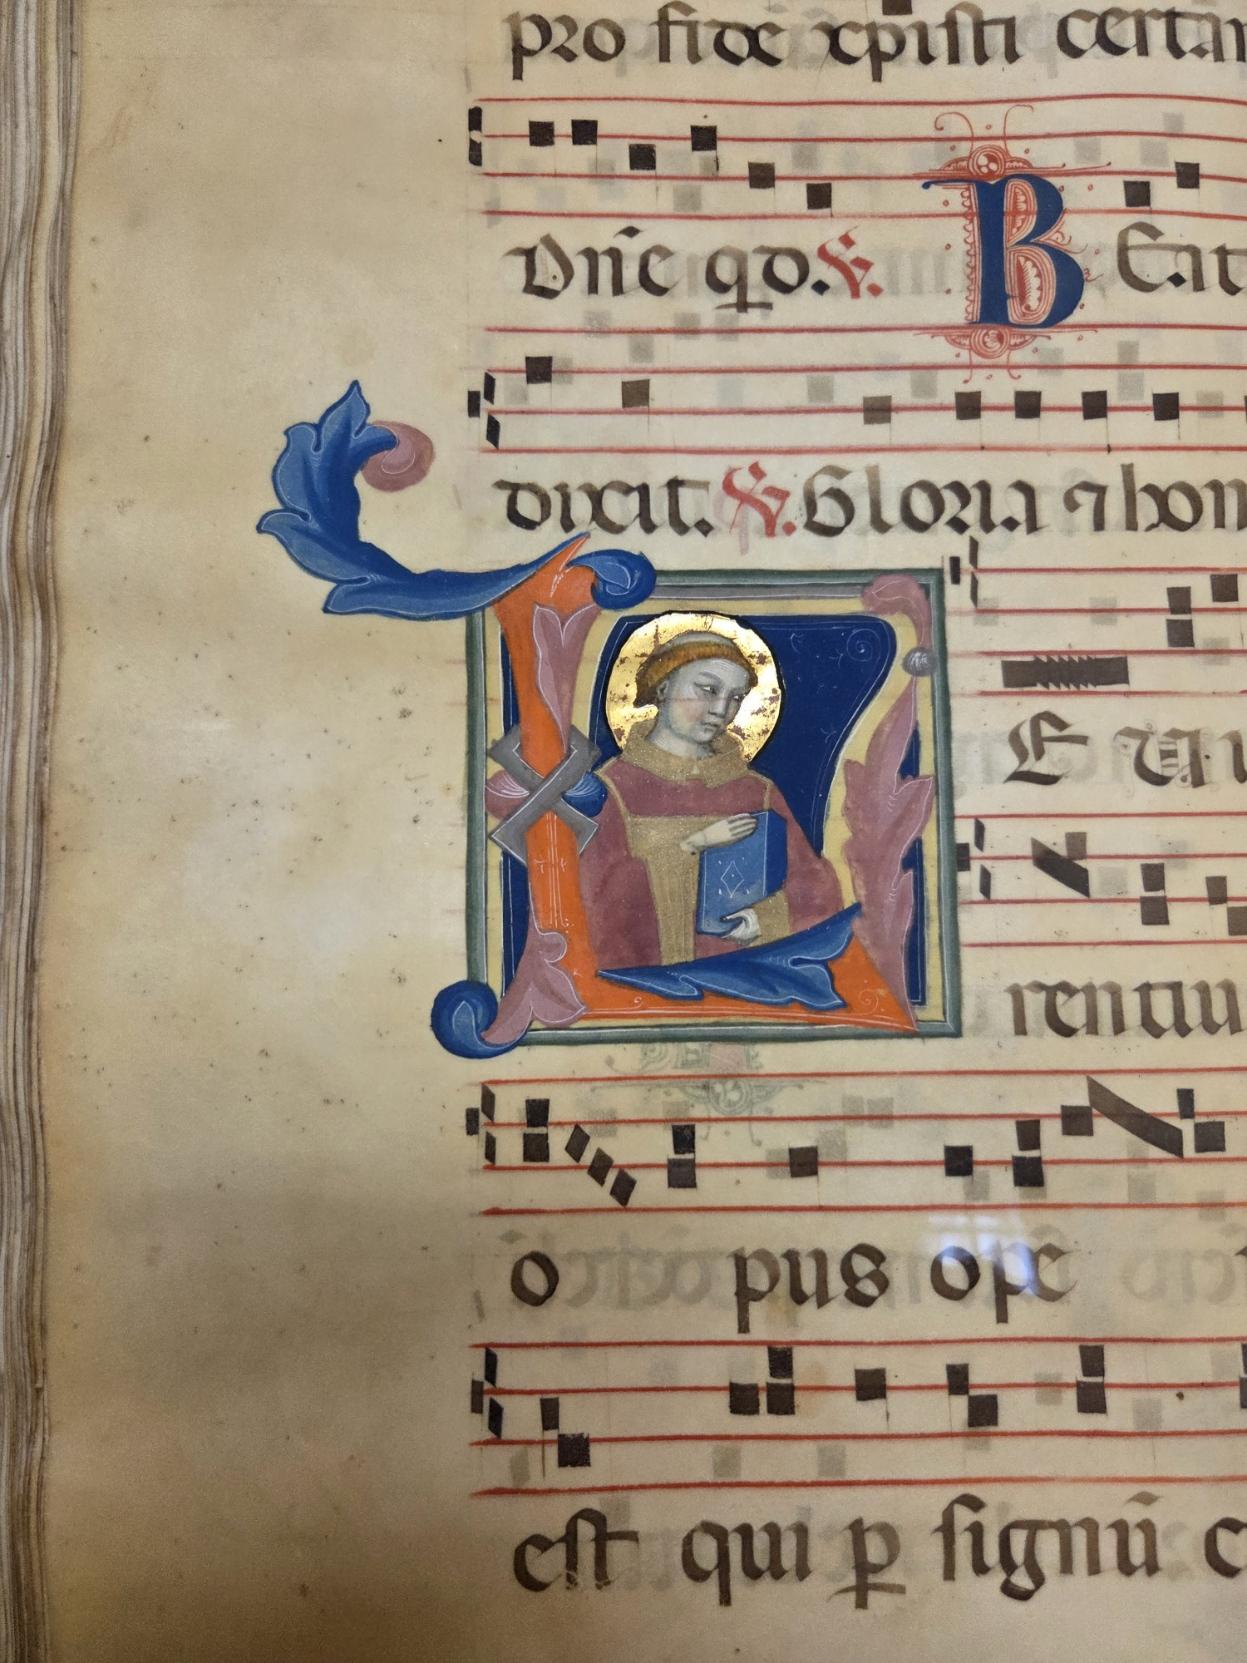 pro fide xpisti certam
Dñe qd. ℣. B Eat
dixit. ℟. Gloria ⁊ hon
L E ui
rentiu
o pus opē
est qui ꝑ signū c